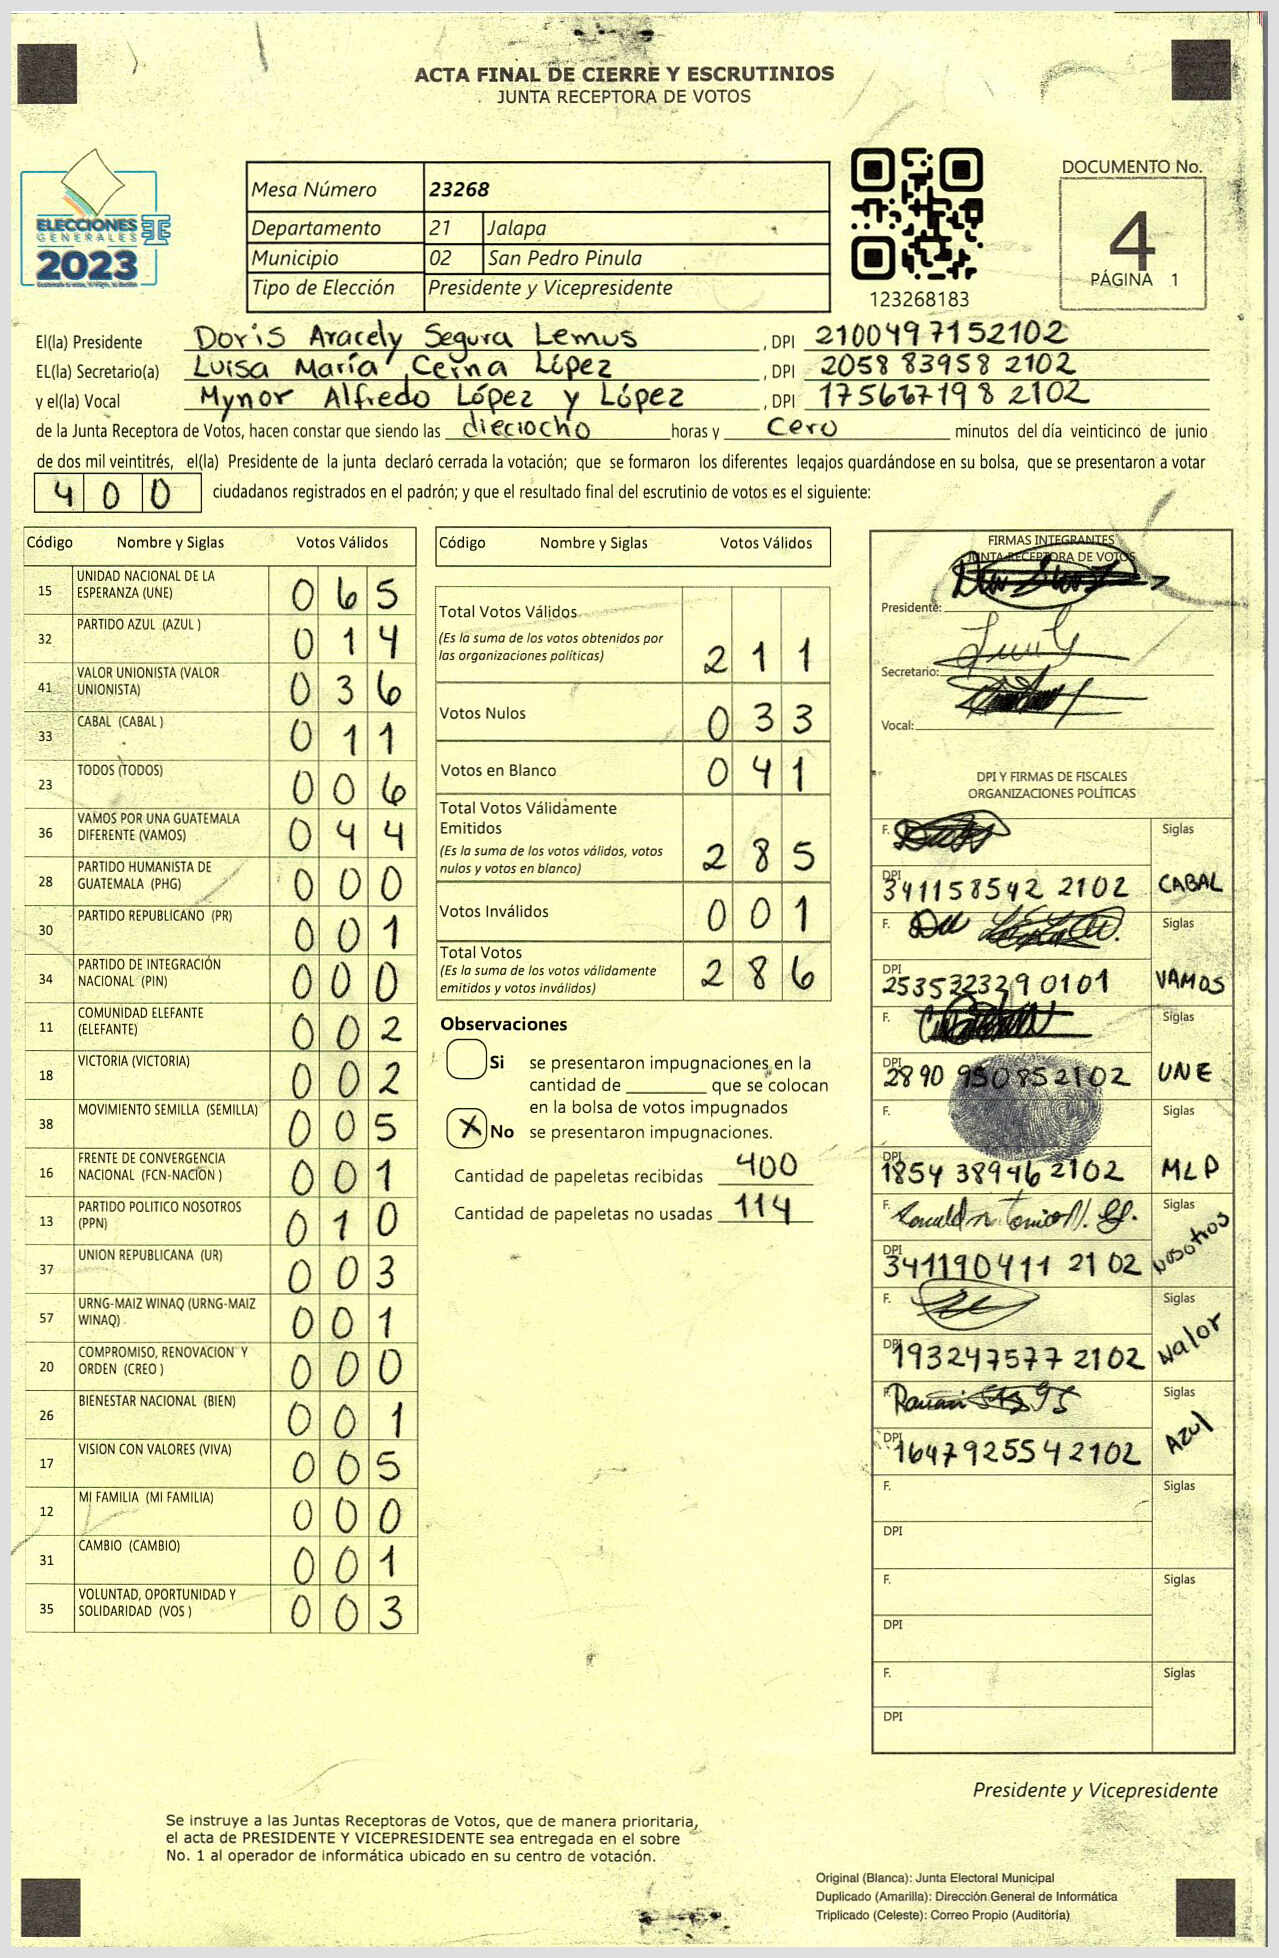 ACTA FINAL DE CIERRE Y ESCRUTINIOS
JUNTA RECEPTORA DE VOTOS
ELECCIONES
GENERALES
2023
Mesa Número 23268
Departamento 21 Jalapa
Municipio 02 San Pedro Pinula
Tipo de Elección Presidente y Vicepresidente
123268183
DOCUMENTO No.
4
PÁGINA 1
El(la) Presidente Doris Aracely Segura Lemus, DPI 2100497152102
EL(la) Secretario(a) Luisa María Cerna López, DPI 2058 83958 2102
y el(la) Vocal Mynor Alfredo López y López, DPI 175667198 2102
de la Junta Receptora de Votos, hacen constar que siendo las dieciocho horas y cero minutos del día veinticinco de junio
de dos mil veintitrés, el(la) Presidente de la junta declaró cerrada la votación; que se formaron los diferentes legajos guardándose en su bolsa, que se presentaron a votar
400 ciudadanos registrados en el padrón; y que el resultado final del escrutinio de votos es el siguiente:
Código Nombre y Siglas Votos Válidos
15 UNIDAD NACIONAL DE LA ESPERANZA (UNE) 065
32 PARTIDO AZUL (AZUL ) 014
41 VALOR UNIONISTA (VALOR UNIONISTA) 036
33 CABAL (CABAL ) 011
23 TODOS (TODOS) 006
36 VAMOS POR UNA GUATEMALA DIFERENTE (VAMOS) 044
28 PARTIDO HUMANISTA DE GUATEMALA (PHG) 000
30 PARTIDO REPUBLICANO (PR) 001
34 PARTIDO DE INTEGRACIÓN NACIONAL (PIN) 000
11 COMUNIDAD ELEFANTE (ELEFANTE) 002
18 VICTORIA (VICTORIA) 002
38 MOVIMIENTO SEMILLA (SEMILLA) 005
16 FRENTE DE CONVERGENCIA NACIONAL (FCN-NACION ) 001
13 PARTIDO POLITICO NOSOTROS (PPN) 010
37 UNION REPUBLICANA (UR) 003
57 URNG-MAIZ WINAQ (URNG-MAIZ WINAQ) 001
20 COMPROMISO, RENOVACION Y ORDEN (CREO ) 000
26 BIENESTAR NACIONAL (BIEN) 001
17 VISION CON VALORES (VIVA) 005
12 MI FAMILIA (MI FAMILIA) 000
31 CAMBIO (CAMBIO) 001
35 VOLUNTAD, OPORTUNIDAD Y SOLIDARIDAD (VOS ) 003
Código Nombre y Siglas Votos Válidos
Total Votos Válidos
(Es la suma de los votos obtenidos por
las organizaciones políticas) 211
Votos Nulos 033
Votos en Blanco 041
Total Votos Válidamente
Emitidos
(Es la suma de los votos válidos, votos
nulos y votos en blanco) 285
Votos Inválidos 001
Total Votos
(Es la suma de los votos válidamente
emitidos y votos inválidos) 286
Observaciones
Si se presentaron impugnaciones en la
cantidad de ________ que se colocan
en la bolsa de votos impugnados
X No se presentaron impugnaciones.
Cantidad de papeletas recibidas 400
Cantidad de papeletas no usadas 114
FIRMAS INTEGRANTES
JUNTA RECEPTORA DE VOTOS
Presidente:
Secretario:
Vocal:
DPI Y FIRMAS DE FISCALES
ORGANIZACIONES POLÍTICAS
F. Siglas
DPI 341158542 2102 CABAL
F. Siglas
DPI 253532329 0101 VAMOS
F. Siglas
DPI 2890 950852102 UNE
F. Siglas
DPI 1854 38946 2102 MLP
F. Siglas
DPI 341190411 2102 Nosotros
F. Siglas
DPI 193247577 2102 Walor
F. Siglas
DPI 1647925542102 Azul
F. Siglas
DPI
F. Siglas
DPI
F. Siglas
DPI
Presidente y Vicepresidente
Se instruye a las Juntas Receptoras de Votos, que de manera prioritaria,
el acta de PRESIDENTE Y VICEPRESIDENTE sea entregada en el sobre
No. 1 al operador de informática ubicado en su centro de votación.
Original (Blanca): Junta Electoral Municipal
Duplicado (Amarilla): Dirección General de Informática
Triplicado (Celeste): Correo Propio (Auditoría)